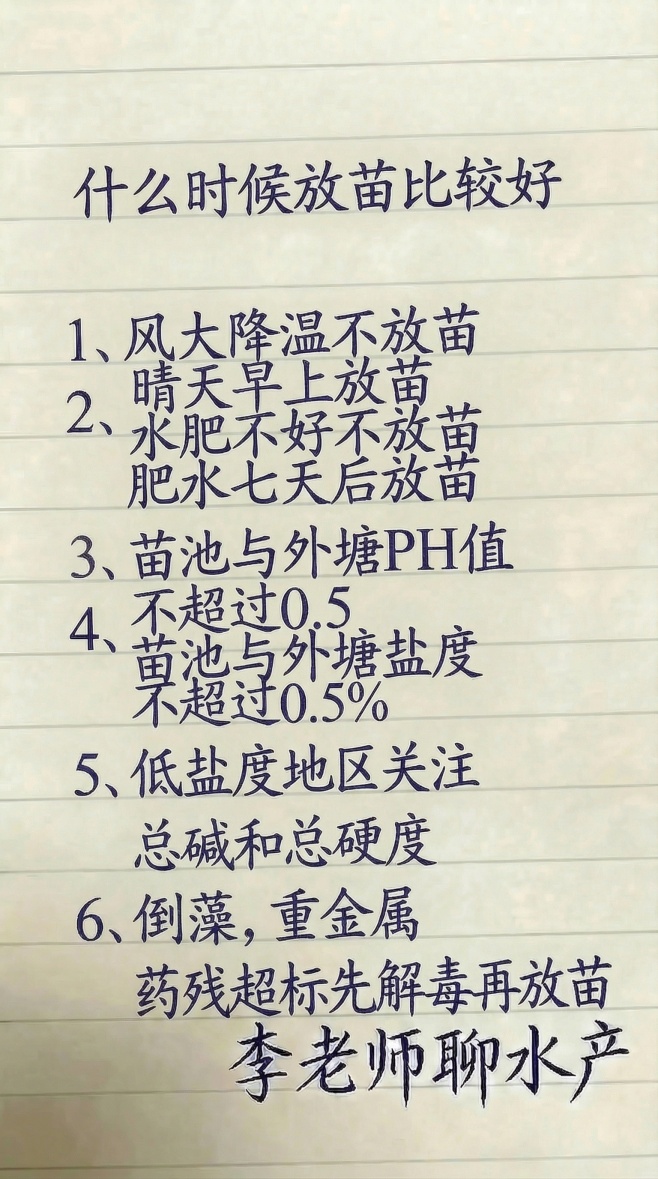 什么时候放苗比较好
1、风大降温不放苗
晴天早上放苗
2、水肥不好不放苗
肥水七天后放苗
3、苗池与外塘PH值
不超过0.5
4、苗池与外塘盐度
不超过0.5%
5、低盐度地区关注
总碱和总硬度
6、倒藻，重金属
药残超标先解毒再放苗
李老师聊水产